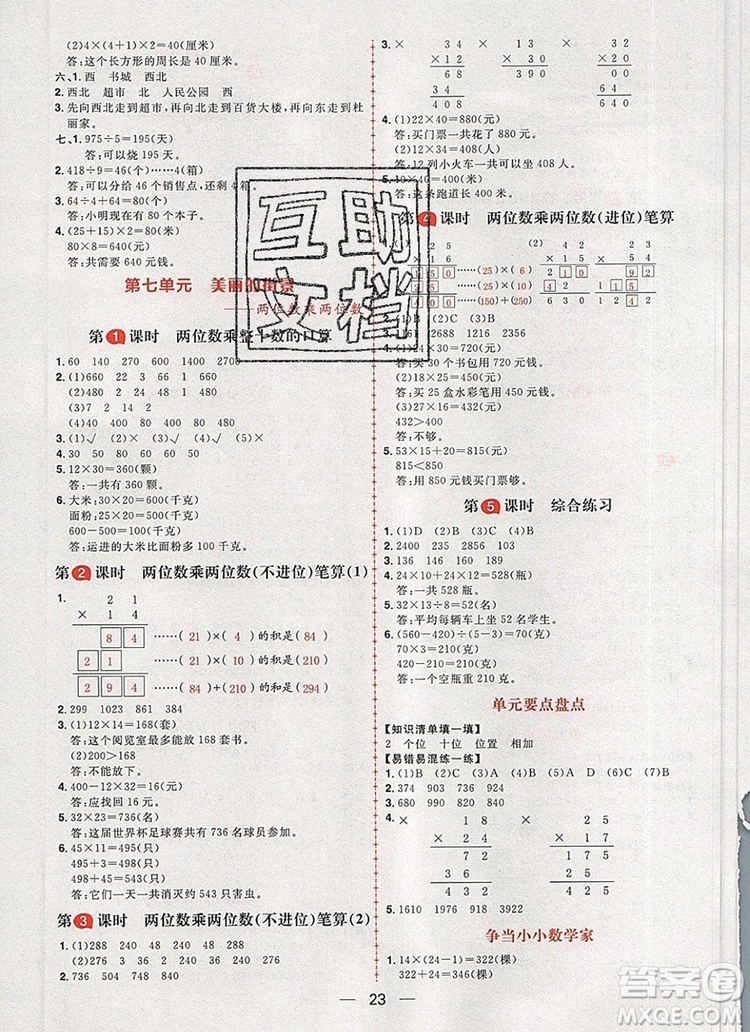 (2)4×(4+1)×2=40(厘米)
答:这个长方形的周长是 40 厘米。
六、1. 西 书城 西北
2. 西北 超市 北 人民公园 西北
3. 先向西北走到超市，再向北走到百货大楼，再向西北走到杜
丽家。
七、1. 975÷5=195(天)
答:可以烧 195 天。
2. 418÷9=46(个)……4(箱)
答:可以分给 46 个销售点，还剩 4 箱。
3. 64÷4+64=80(本)
答:小明现在有 80 本子。
4. (25+15)×2=80(元)
80×8=640(元)
答:共需 640 元钱。
第七单元 美丽的街景
——两位数乘两位数
第1课时 两位数乘整十数的口算
1. 60 140 270 600 1400 2700
2. (1)660 22 33 880
(2)480 24 48 240
3. (1)2 7 2 (2)8 31
4. 400 40 480 48 400 480 800
5. (1)√ (2)× (3)√ (4)√
6. 12×30=360(颗)
答:一共有 360 颗。
6. 大米:30×20=600(千克)
面粉:25×20=500(千克)
600-500=100(千克)
答:运进的大米比面粉多 100 千克。
第2课时 两位数乘两位数(不进位)笔算(1)
1. 2 1
× 1 4
8 4 ……( 21 )×( 4 )的积是( 84 )
2 1 ……( 21 )×( 10 )的积是( 210 )
2 9 4 ……( 84 )+( 210 )的和是( 294 )
2. 299 1023 861 384
3. (1)12×14=168(套)
答:这个阅览室最多能放 168 套。
(2)200>168
答:不能放下。
4. 400-12×32=16(元)
答:还剩 16 元。
5. 32×23=736(名)
答:这届世界杯足球赛共有 736 名球员参加。
6. 45×11=495(只)
495+3=498(只)
498+45=543(只)
答:它们一共消灭约 543 只害虫。
第3课时 两位数乘两位数(不进位)笔算(2)
1. (1)288 240 48 288
(2)276 3 36 2 240 276
2. 275 529 736 492
3. × 3 4
× 1 2
6 8
3 4
4 0 8
× 1 3
× 3 0
3 9 0
4. (1)22×40=880(元)
答:买门票一共花了 880 元。
(2)12×34=408(人)
答:12 列小火车一共可以坐 408 人。
5. 10×40=400(米)
答:这条跑道长 400 米。
第4课时 两位数乘两位数(进位)笔算
2. 299 574 415 918
3. (1)24×30=720(元)
答:买 30 个书包用 720 元钱。
(2)18×25=450(元)
答:买 25 盒水彩笔用 450 元钱。
4. 18×24=432(个)
432>400
答:不够。
5. 53×15+20=815(元)
815<850
答:用 850 元钱买门票够。
第5课时 综合练习
1. (1)D (2)B (3)C (4)B
2. 2400 235 2900 364
3. 136 146 150 189
4. 24×10+24×12=528(瓶)
答:一共 528 瓶。
5. 32×13÷8=52(名)
答:平均每辆车上 52 名学生。
6. (560-420)÷(50-30)=7(克)
420-30×7=210(克)
答:一个空瓶重 210 克。
单元要点盘点
【知识清单填一填】
2 个位 十位 位置 相加
【易错易混练一练】
1. (1)D (2)C (3)A (4)C (5)B
2. 374 903 950 736
3. 690 680 820 840
4. × 1 8
× 2 4
7 2
3 6
4 3 2
× 2 5
× 1 5
1 2 5
2 5
3 7 5
5. 1610 1944 1053 3920
争当小小数学家
1. 14×(24-1)=322(棵)
322+24=346(棵)
23
互助
文档
答案圈
MXQE.COM